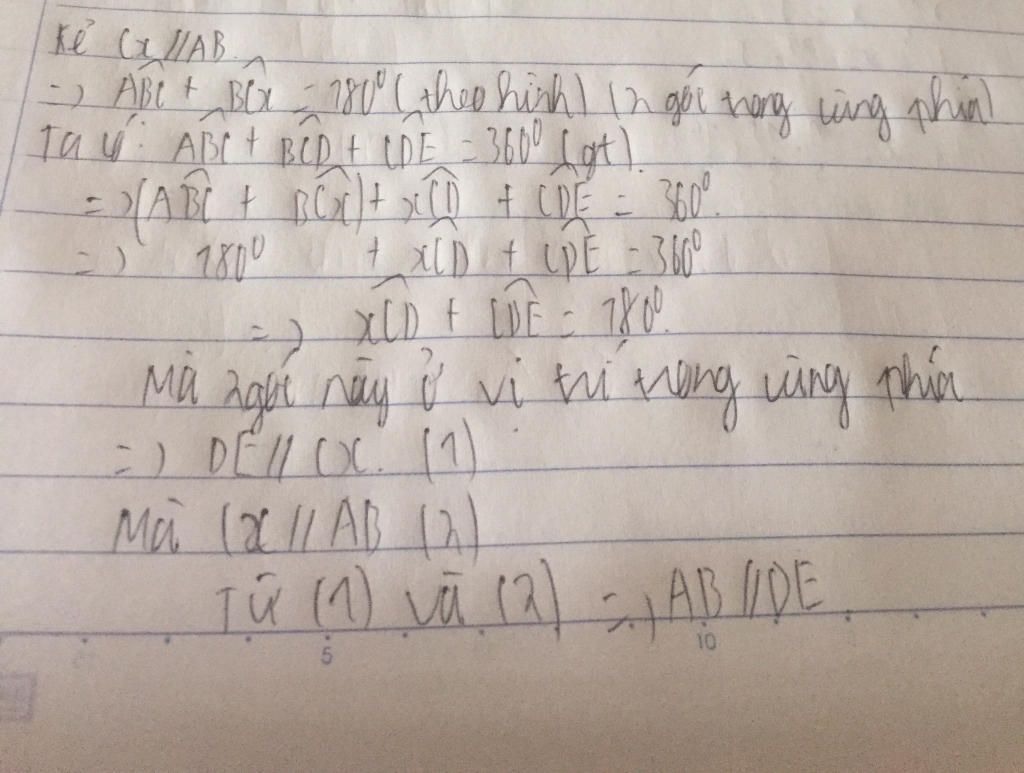 Kẻ Cx//AB
=> ABC + BCx = 180⁰ (theo hình) (2 góc trong cùng phía)
Ta có: ABC + BCD + CDE = 360⁰ (gt).
=> (ABC + BCx) + xCD + CDE = 360⁰.
=> 180⁰ + xCD + CDE = 360⁰
=> xCD + CDE = 180⁰.
Mà 2 góc này ở vị trí trong cùng phía
=> DE // Cx. (1)
Mà Cx // AB (2)
Từ (1) và (2) => AB // DE
5 10